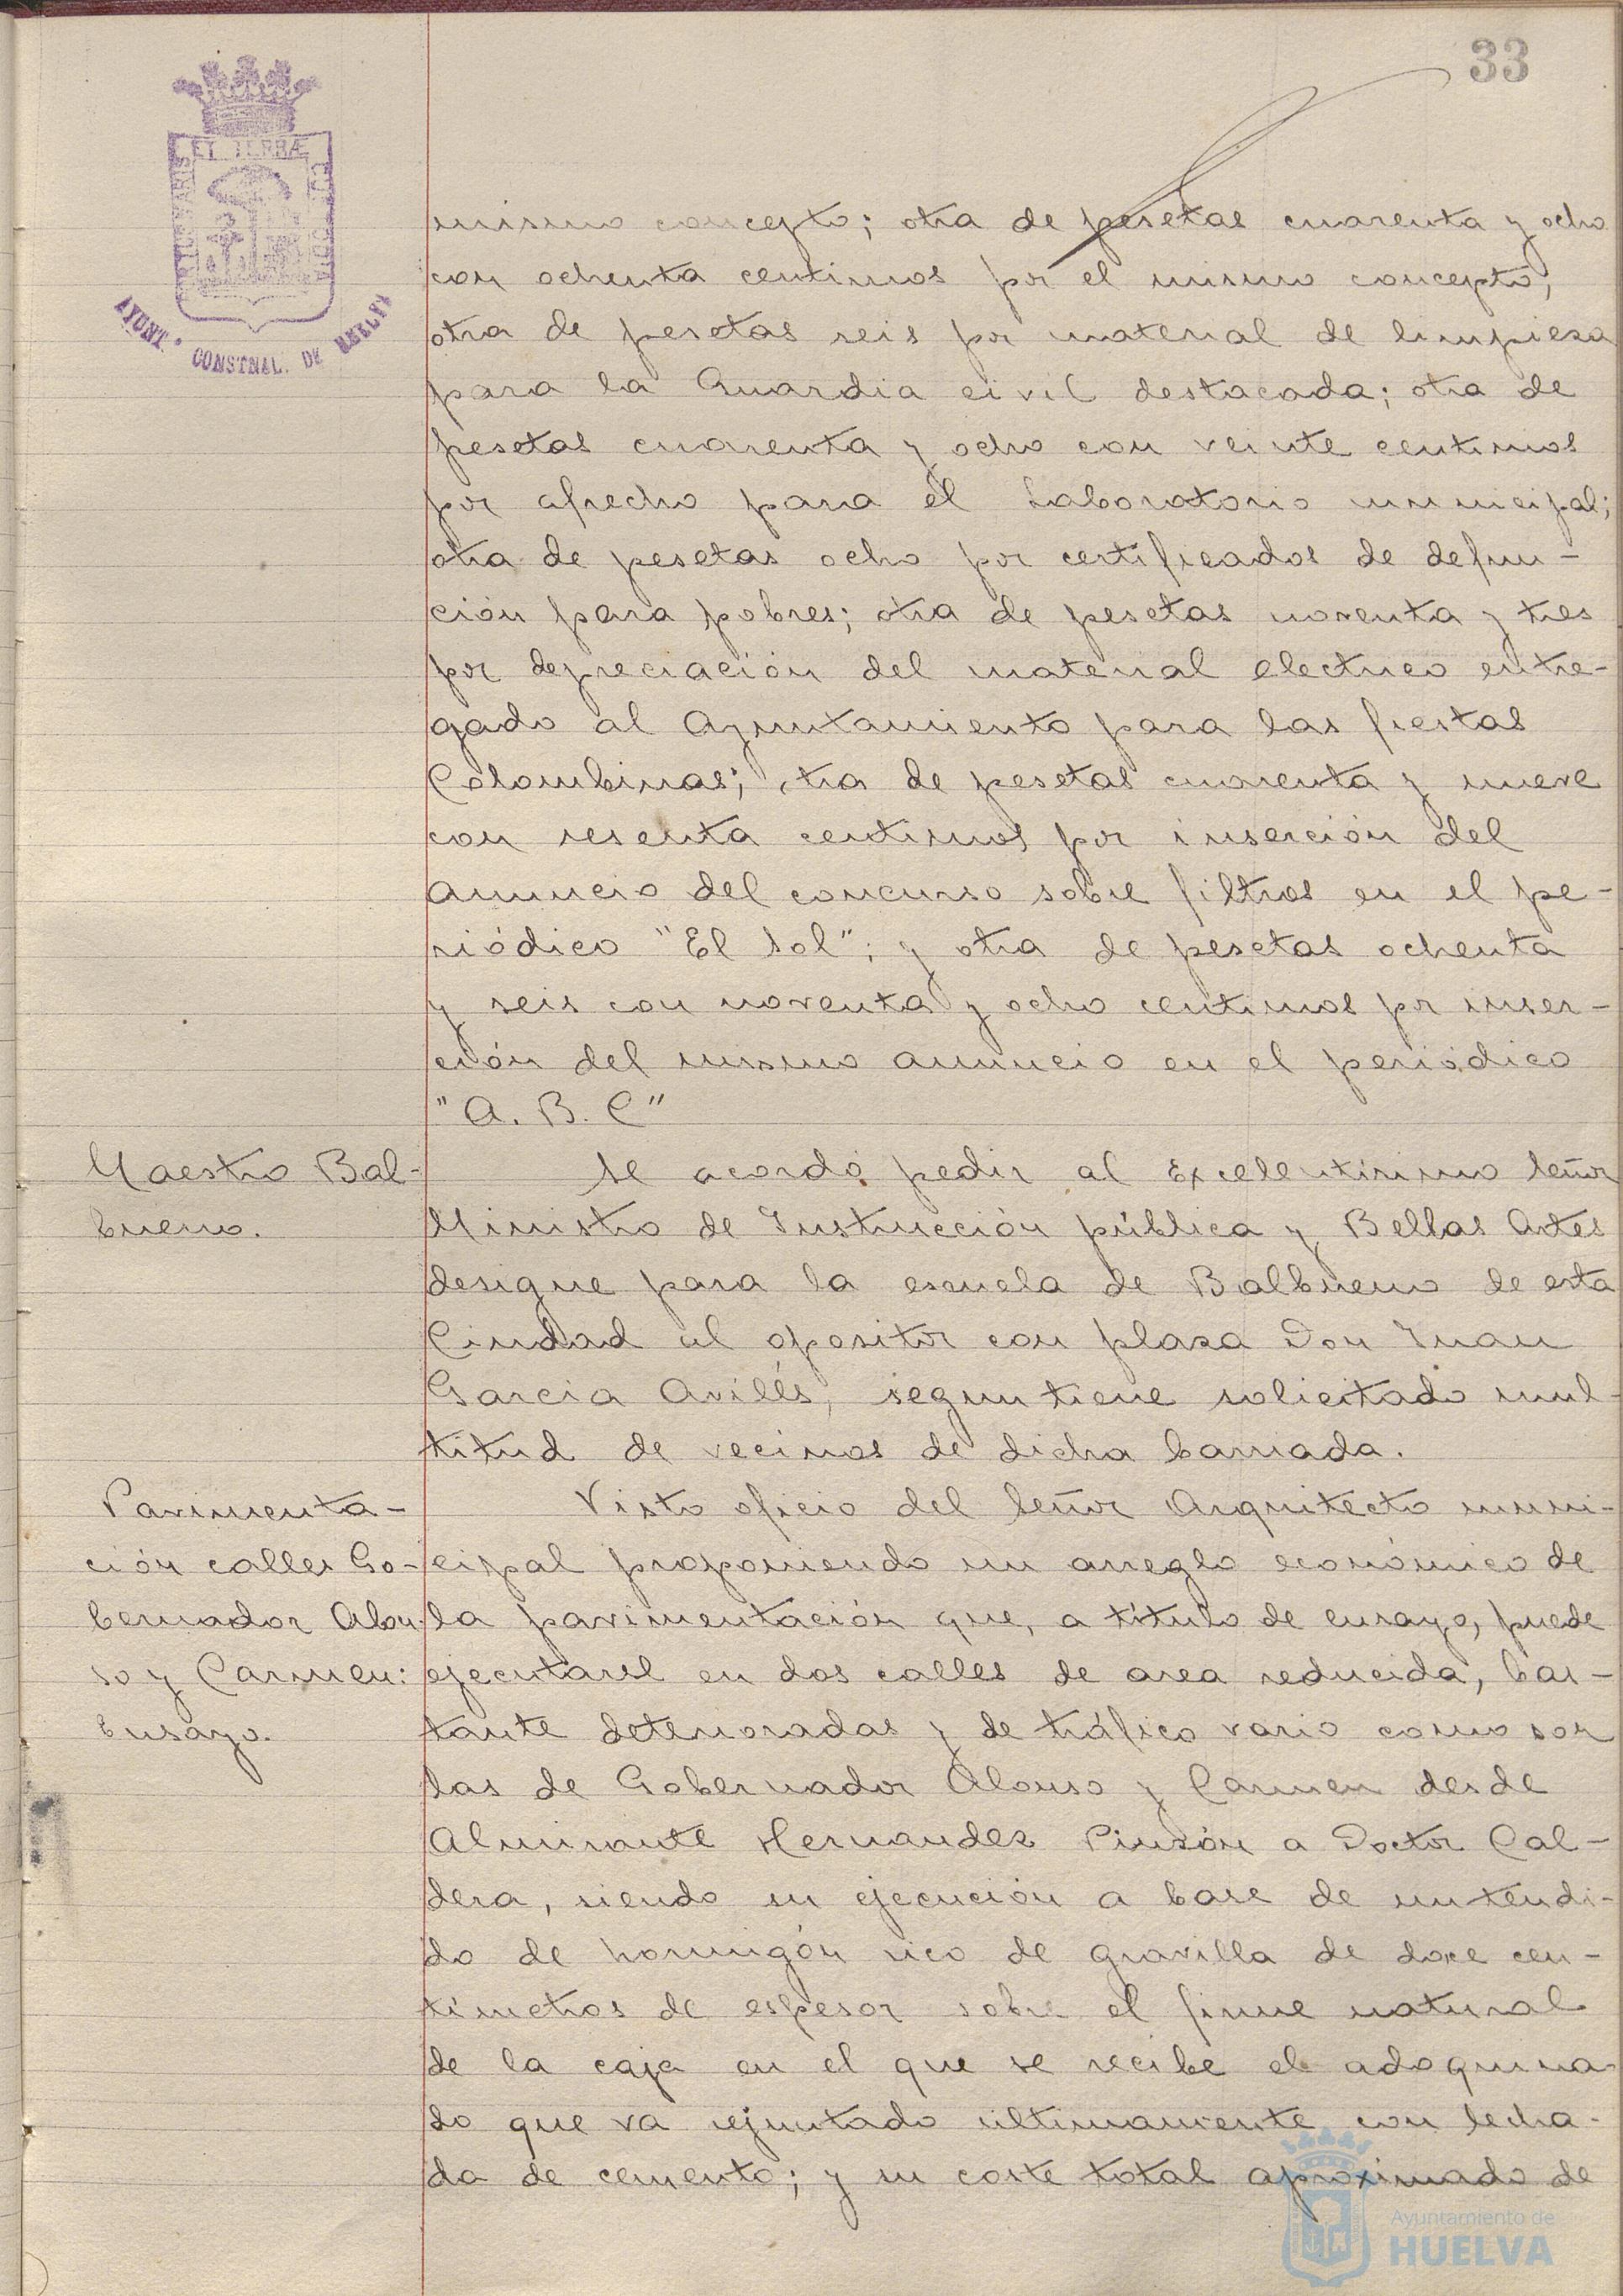 33
ET TERRÆ
AYUNT.º CONSTNAL. DE HUELVA
mismo concepto; otra de pesetas cuarenta y ocho
con ochenta centimos por el mismo concepto;
otra de pesetas seis por material de limpieza
para la Guardia civil destacada; otra de
pesetas cuarenta y ocho con veinte centimos
por afrecho para el Laboratorio municipal;
otra de pesetas ocho por certificados de defun-
ción para pobres; otra de pesetas noventa y tres
por depreciación del material electrico entre-
gado al Ayuntamiento para las fiestas
Colombinas; otra de pesetas cuarenta y nueve
con sesenta centimos por inserción del
anuncio del concurso sobre filtros en el pe-
riódico "El Sol"; y otra de pesetas ochenta
y seis con noventa y ocho centimos por inser-
ción del mismo anuncio en el periódico
"A. B. C"
Maestro Bal-
bueno.
Se acordó pedir al Excelentísimo Señor
Ministro de Instrucción pública y Bellas Artes
designe para la escuela de Balbueno de esta
Ciudad al opositor con plaza Don Juan
Garcia Avilés, segun tiene solicitado mul-
titud de vecinos de dicha barriada.
Pavimenta-
ción calles Go-
bernador Alon-
so y Carmen:
Ensayo.
Visto oficio del Señor Arquitecto muni-
cipal proponiendo un arreglo económico de
la pavimentación que, a título de ensayo, puede
ejecutarse en dos calles de area reducida, bas-
tante deterioradas y de tráfico vario como son
las de Gobernador Alonso y Carmen desde
Almirante Hernandez Pinzón a Doctor Cal-
dera, siendo su ejecución a base de un tendi-
do de hormigón rico de gravilla de doce cen-
tímetros de espesor sobre el firme natural
de la caja en el que se recibe el adoquina-
do que va rejuntado ultimamente con lecha-
da de cemento; y su coste total aproximado de
Ayuntamiento de
HUELVA